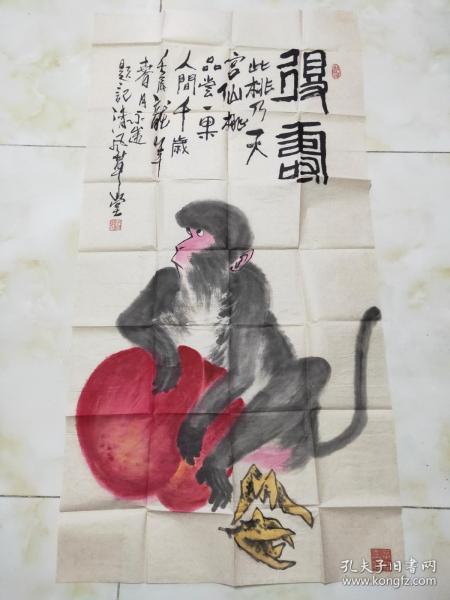 得壽
此桃乃天
宮仙桃
品尝一果
人間千歲
壬辰龍年
春月
题记清风草堂
孔夫子旧书网
www.kongfz.com